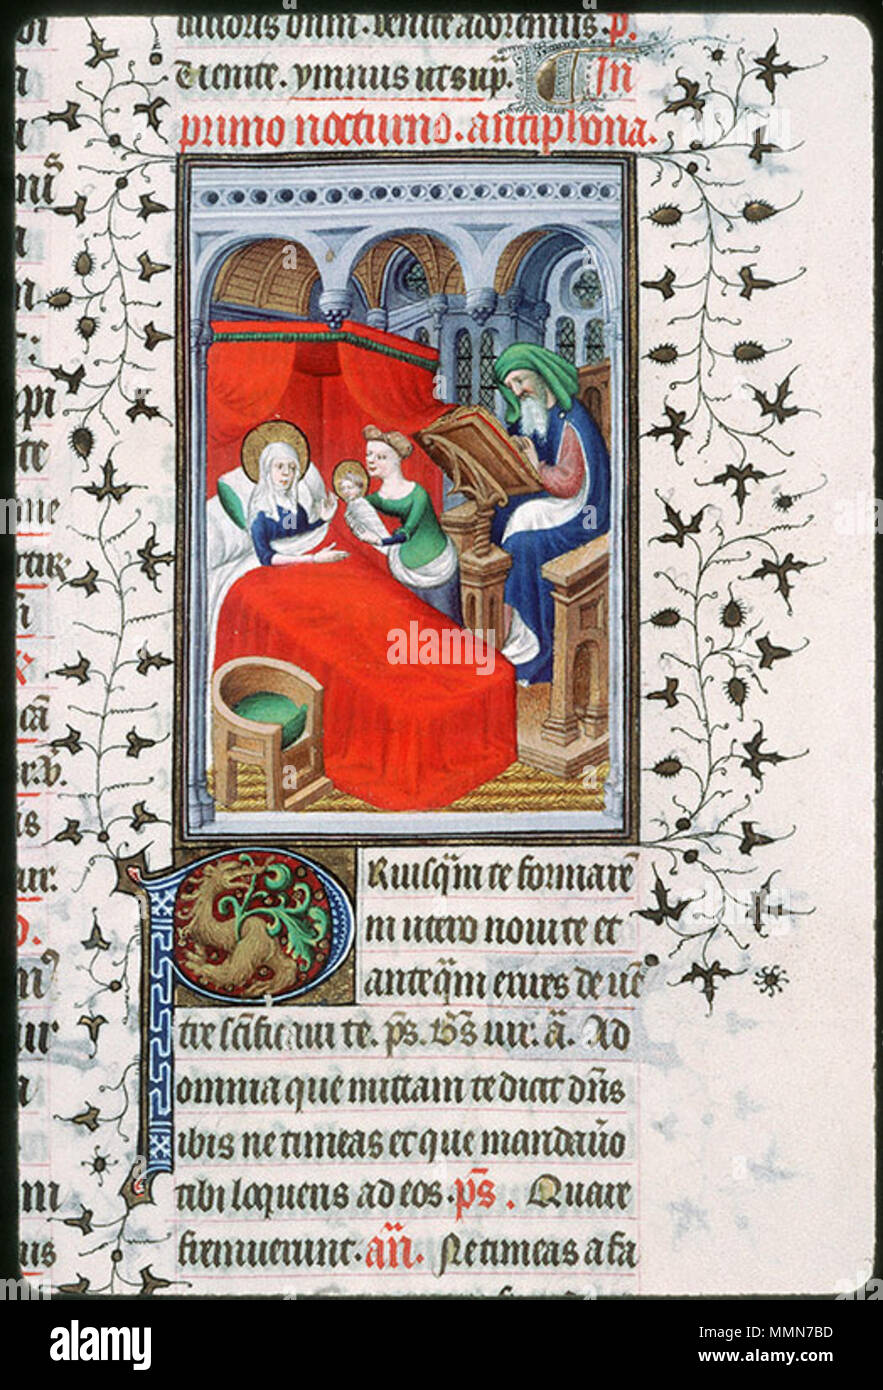 dnm. venite adoremus. p.
venite. ymnus ut sup̄. In
primo nocturno. antiphona.
PRiusq̄m te formarē
in utero noui te et
anteq̄m exires de uē
tre sc̄ificaui te. p̄s. B̄s uir. ā. Ad
omnia que mittam te dicit dn̄s
ibis ne timeas et que mandau̅o
tibi loqueris ad eos. p̄s. Quare
fremuerunt. an̄. Ne timeas a fa
alamy
Image ID: MMN7BD
www.alamy.com